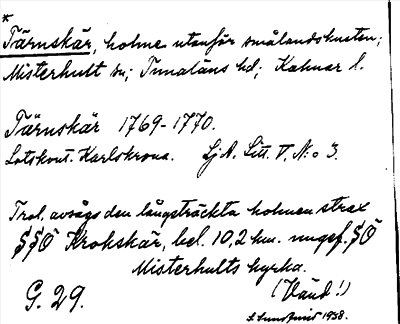 *
Tärnskär, holme utanför smålandskusten;
Misterhult sn; Tunaläns hd; Kalmar l.
Tärnskär 1769-1770.
Lotskont. Karlskrona. SjA. Litt. V, N:o 3.
Trol. avsågs den långsträckta holmen strax
SSÖ Krokskär, bel. 10,2 km. ungef. SÖ
Misterhults kyrka.
(Vänd!)
G. 29.
1938.